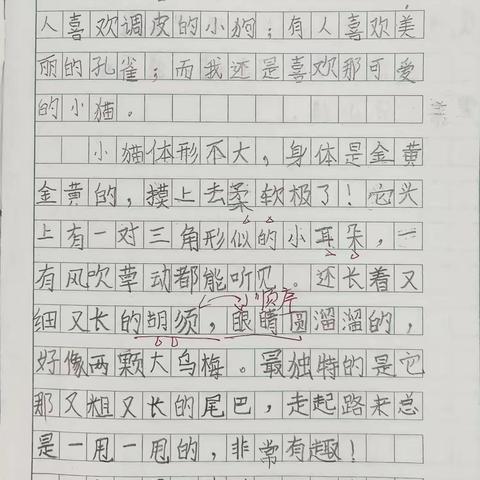 人喜欢调皮的小狗；有人喜欢美
丽的孔雀；而我还是喜欢那可爱
的小猫。
小猫体形不大，身体是金黄
金黄的，摸上去柔软极了！它头
上有一对三角形似的小耳朵，一
有风吹草动都能听见。还长着又
顺序
细又长的胡须，眼睛圆溜溜的，
好像两颗大乌梅。最独特的是它
那又粗又长的尾巴，走起路来总
是一甩一甩的，非常有趣！